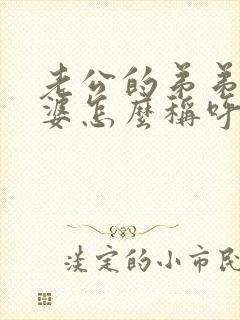 老公的弟弟
婆怎麼稱呼
淡定的小市民